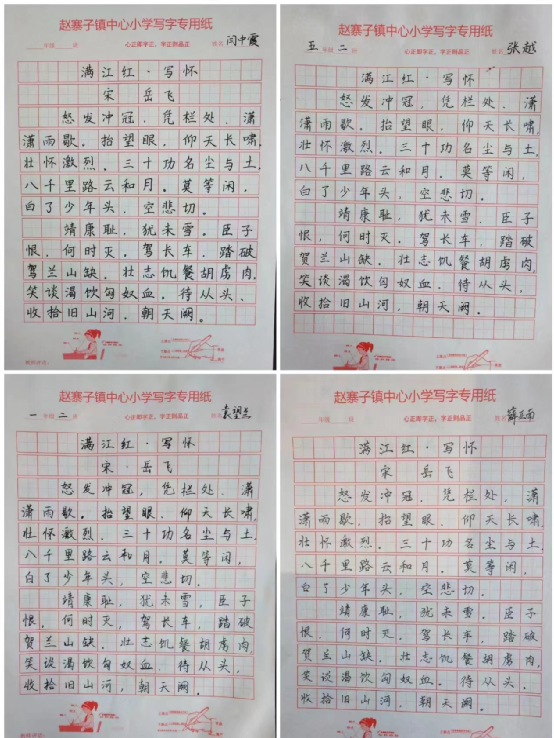 赵寨子镇中心小学写字专用纸
年级 班
心正即字正，字正则品正
姓名 闫中霞
满江红·写怀
宋 岳飞
怒发冲冠，凭栏处、潇
潇雨歇。抬望眼，仰天长啸，
壮怀激烈。三十功名尘与土，
八千里路云和月。莫等闲，
白了少年头，空悲切。
靖康耻，犹未雪。臣子
恨，何时灭。驾长车，踏破
驾兰山缺。壮志饥餐胡虏肉，
笑谈渴饮匈奴血。待从头、
收拾旧山河，朝天阙。
赵寨子镇中心小学写字专用纸
五 二
心正即字正，字正则品正
姓名 张越
满江红·写怀
怒发冲冠，凭栏处、潇
潇雨歇。抬望眼，仰天长啸，
壮怀激烈。三十功名尘与土，
八千里路云和月。莫等闲，
白了少年头，空悲切。
靖康耻，犹未雪。臣子
恨，何时灭。驾长车，踏破
贺兰山缺。壮志饥餐胡虏肉，
笑谈渴饮匈奴血。待从头、
收拾旧山河，朝天阙。
赵寨子镇中心小学写字专用纸
一 年级 二 班
心正即字正，字正则品正
姓名
满江红·写怀
宋·岳飞
怒发冲冠，凭栏处、潇
潇雨歇。抬望眼，仰天长啸，
壮怀激烈。三十功名尘与土，
八千里路云和月。莫等闲，
白了少年头，空悲切。
靖康耻，犹未雪，臣子
恨，何时灭，驾长车，踏破
贺兰山缺。壮志饥餐胡虏肉，
笑谈渴饮匈奴血，待从头、
收拾旧山河，朝天阙。
赵寨子镇中心小学写字专用纸
年级 班
心正即字正，字正则品正
姓名
满江红·写怀
宋 岳飞
怒发冲冠，凭栏处，潇
潇雨歇。抬望眼，仰天长啸，
壮怀激烈。三十功名尘与土，
八千里路云和月。莫等闲，
白了少年头，空悲切。
靖康耻，犹未雪。臣子
恨，何时灭。驾长车，踏破
贺兰山缺。壮志饥餐胡虏肉，
笑谈渴饮匈奴血。待从头、
收拾旧山河，朝天阙。